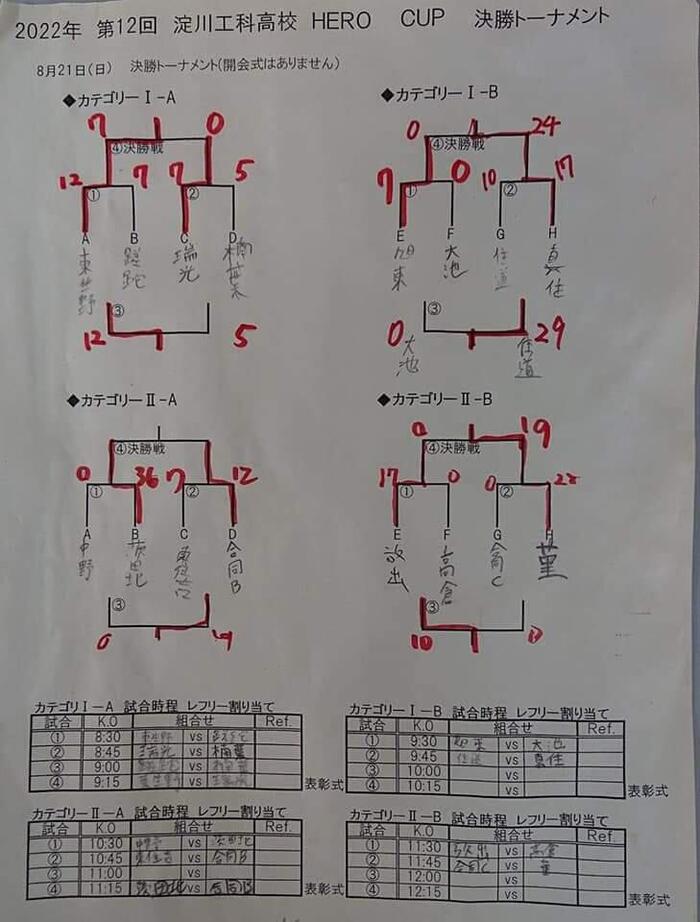 2022年 第12回 淀川工科高校 HERO CUP 決勝トーナメント
8月21日(日) 決勝トーナメント(開会式はありません)
◆カテゴリーⅠ-A
7 0
④決勝戦
12 7 7 5
① ②
A B C D
東生野 蹉跎 瑞光 楠葉
③
12 5
◆カテゴリーⅠ-B
0 24
④決勝戦
7 0 10 17
① ②
E F G H
旭東 大池 住道 真住
③
0 29
大池 住道
◆カテゴリーⅡ-A
④決勝戦
0 36 7 12
① ②
A B C D
中野 茨田北 合同B
③
0
◆カテゴリーⅡ-B
0 19
④決勝戦
17 0 0
① ②
E F G H
放出 高倉 合同C 菫
③
10
カテゴリⅠ-A 試合時程 レフリー割り当て
試合 K.O 組合せ Ref.
① 8:30 vs
② 8:45 瑞光 vs 楠葉
③ 9:00 vs
④ 9:15 vs
表彰式
カテゴリーⅠ-B 試合時程 レフリー割り当て
試合 K.O 組合せ Ref.
① 9:30 旭東 vs 大池
② 9:45 住道 vs 真住
③ 10:00 vs
④ 10:15 vs
表彰式
カテゴリーⅡ-A 試合時程 レフリー割り当て
試合 K.O 組合せ Ref.
① 10:30 vs 茨田北
② 10:45 vs 合同B
③ 11:00 vs
④ 11:15 茨田北 vs 合同B
表彰式
カテゴリーⅡ-B 試合時程 レフリー割り当て
試合 K.O 組合せ Ref.
① 11:30 放出 vs 高倉
② 11:45 合同C vs 菫
③ 12:00 vs
④ 12:15 vs
表彰式